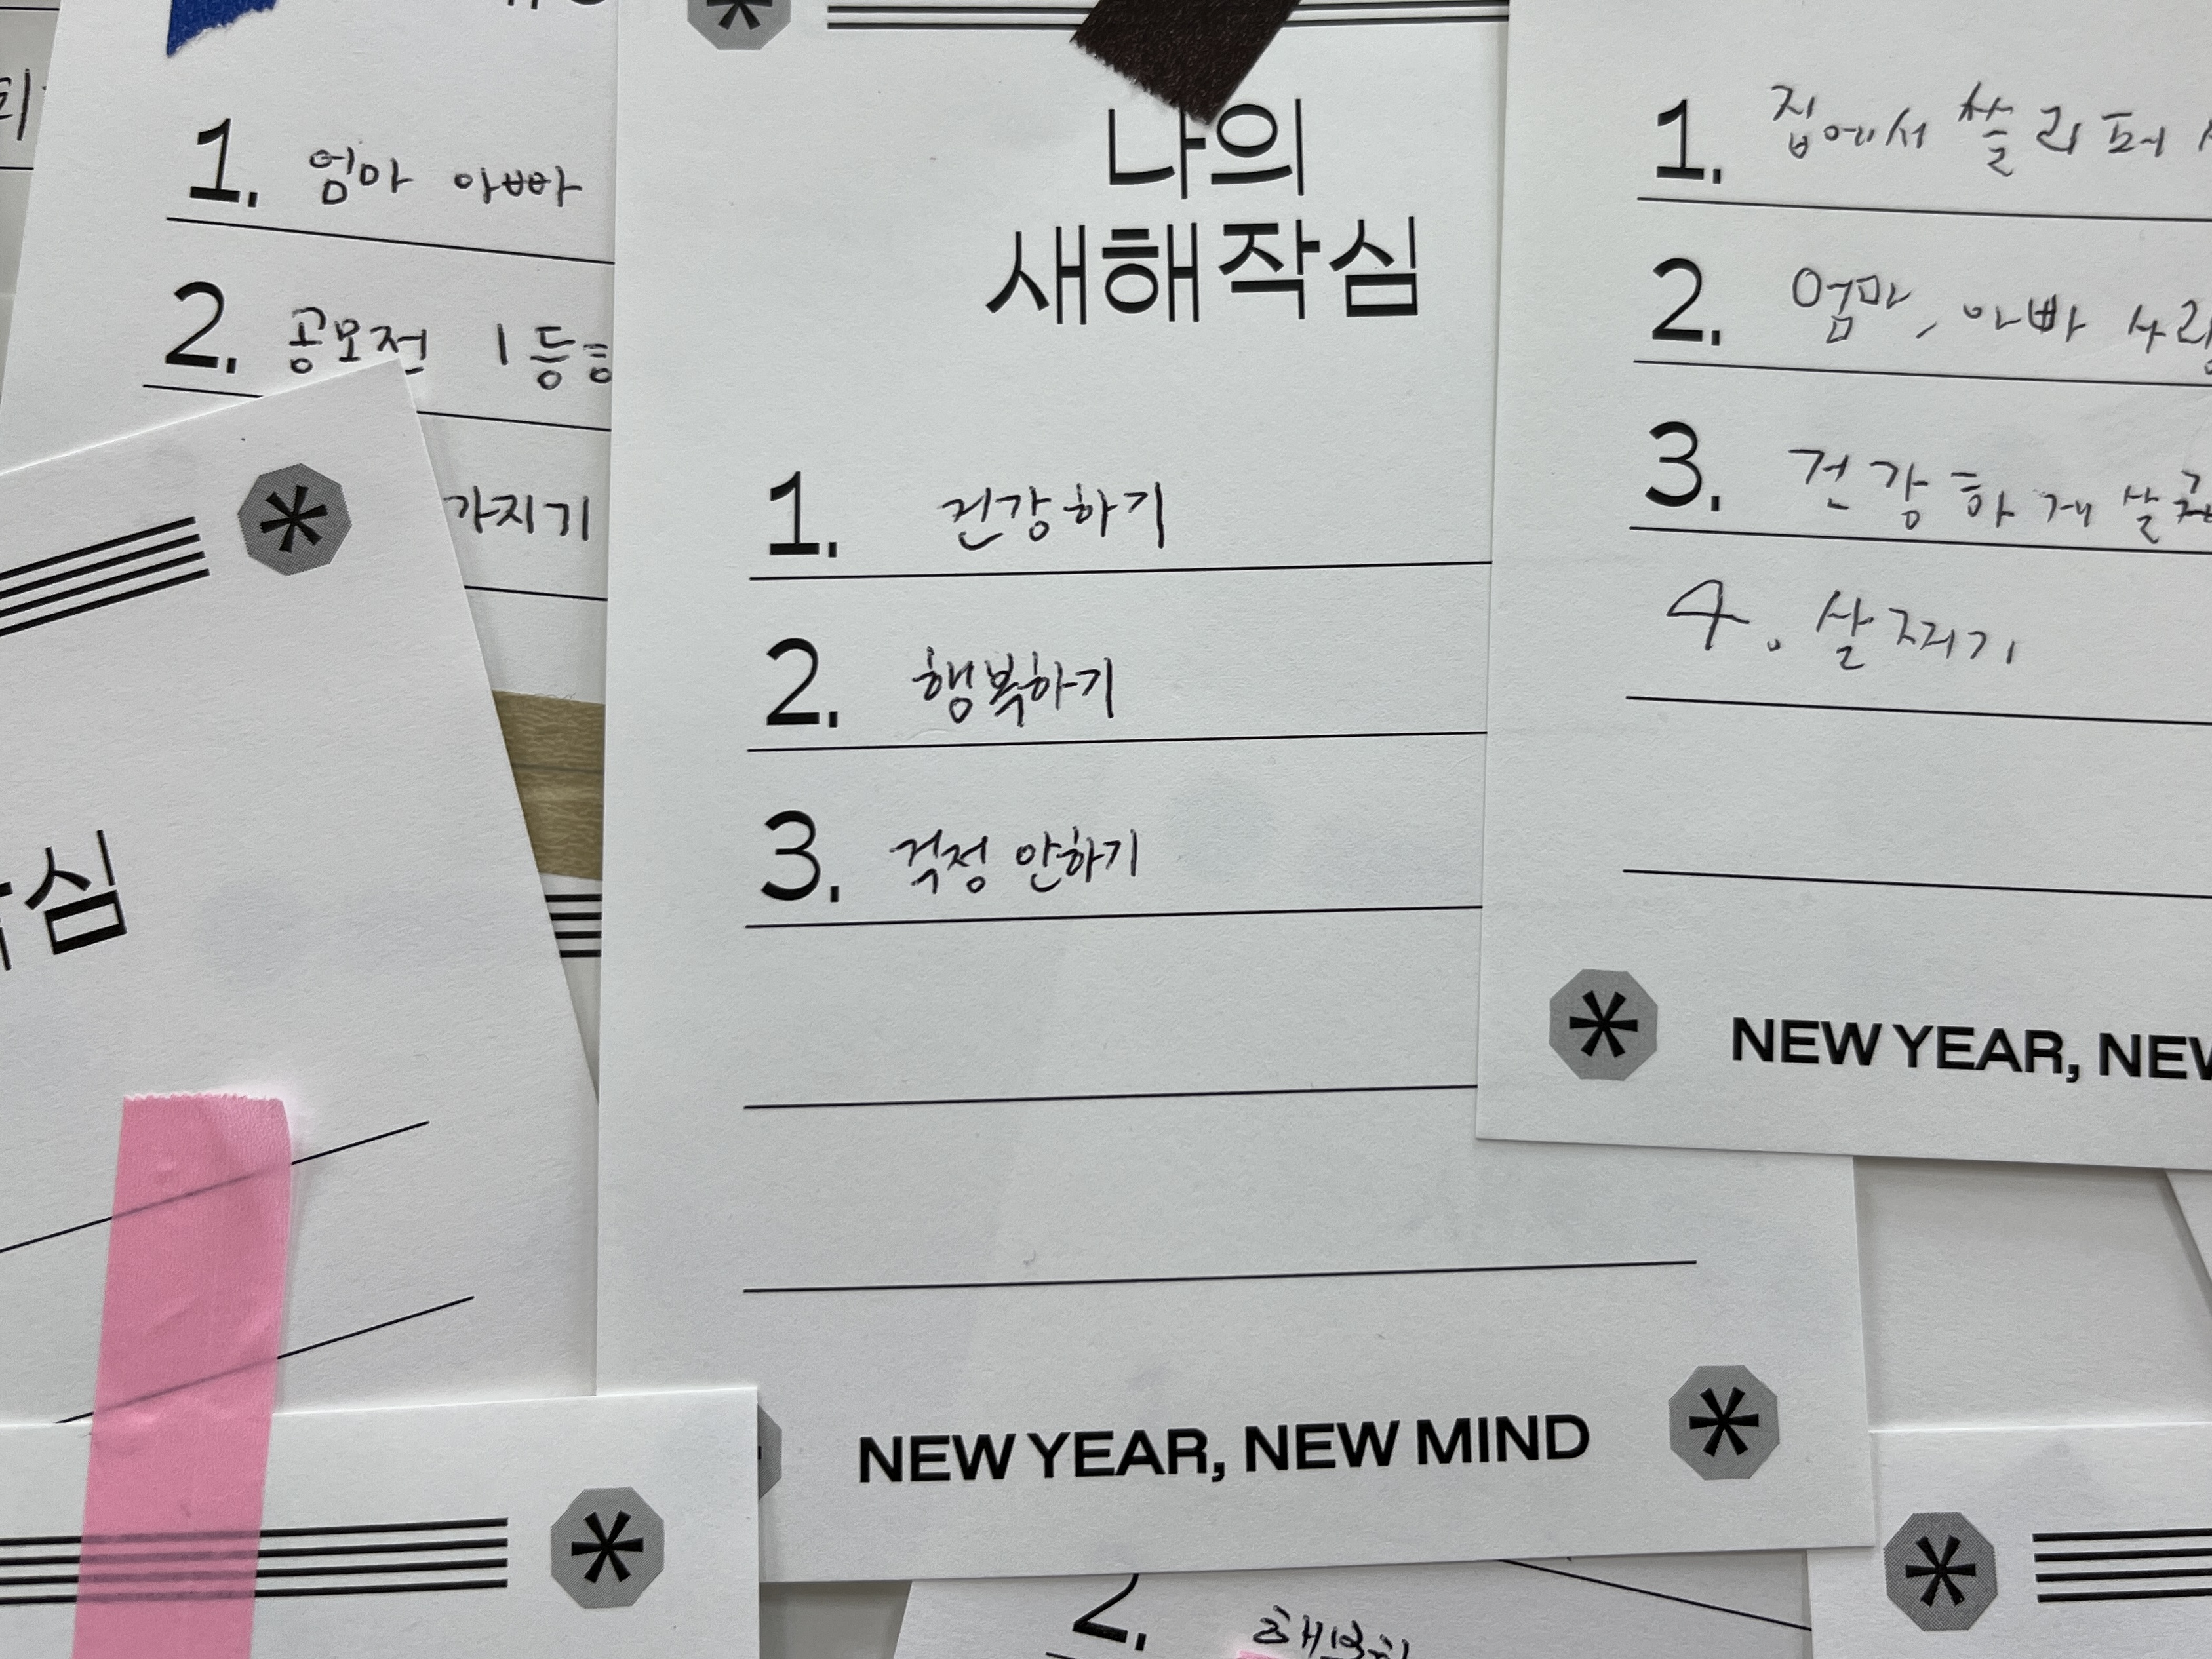 1. 엄마 아빠
2. 공모전 1등
가지기
심
나의
새해작심
1. 건강하기
2. 행복하기
3. 걱정 안하기
NEW YEAR, NEW MIND
1. 집에서 쓸리퍼
2. 엄마, 아빠
3. 건강하게
4. 살찌기
NEW YEAR,
2.